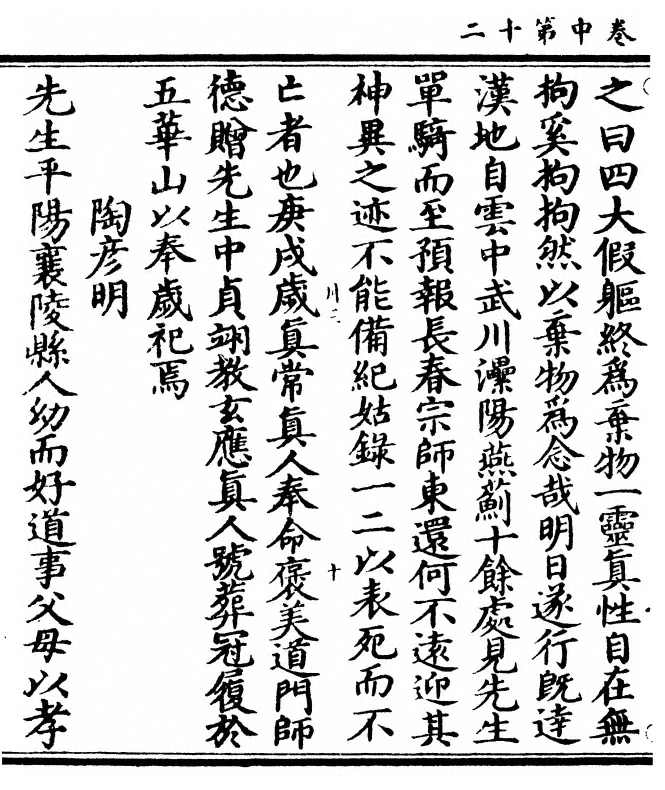 卷中第十二
之曰四大假軀終爲棄物一靈眞性自在無
拘奚拘拘然以棄物爲念哉明日遂行旣達
漢地自雲中武川灅陽燕薊十餘處見先生
單騎而至預報長春宗師東還何不遠迎其
神異之迹不能備紀姑錄一二以表死而不
川二
十
亡者也庚戌歲眞常眞人奉命褒美道門師
德贈先生中貞翊教玄應眞人號葬冠履於
五華山以奉歲祀焉
陶彦明
先生平陽襄陵縣人幼而好道事父母以孝